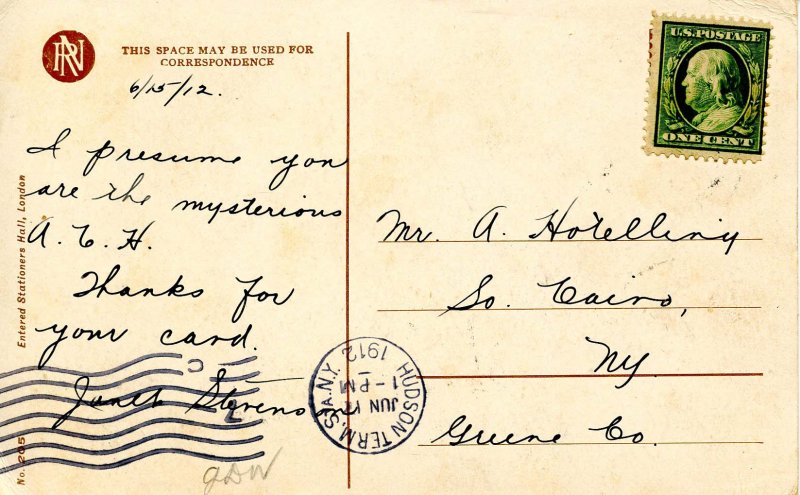 THIS SPACE MAY BE USED FOR
CORRESPONDENCE
6/15/12.
I presume you
are the mysterious
A. C. H.
Thanks for
your card.
Janet Stevenson
Entered Stationers Hall, London
No. 205
U.S. POSTAGE
ONE CENT
Mr. A. Hotelling
So. Cairo,
NY.
Greene Co.
HUDSON TERM. STA. N.Y.
JUN
1-PM
1912